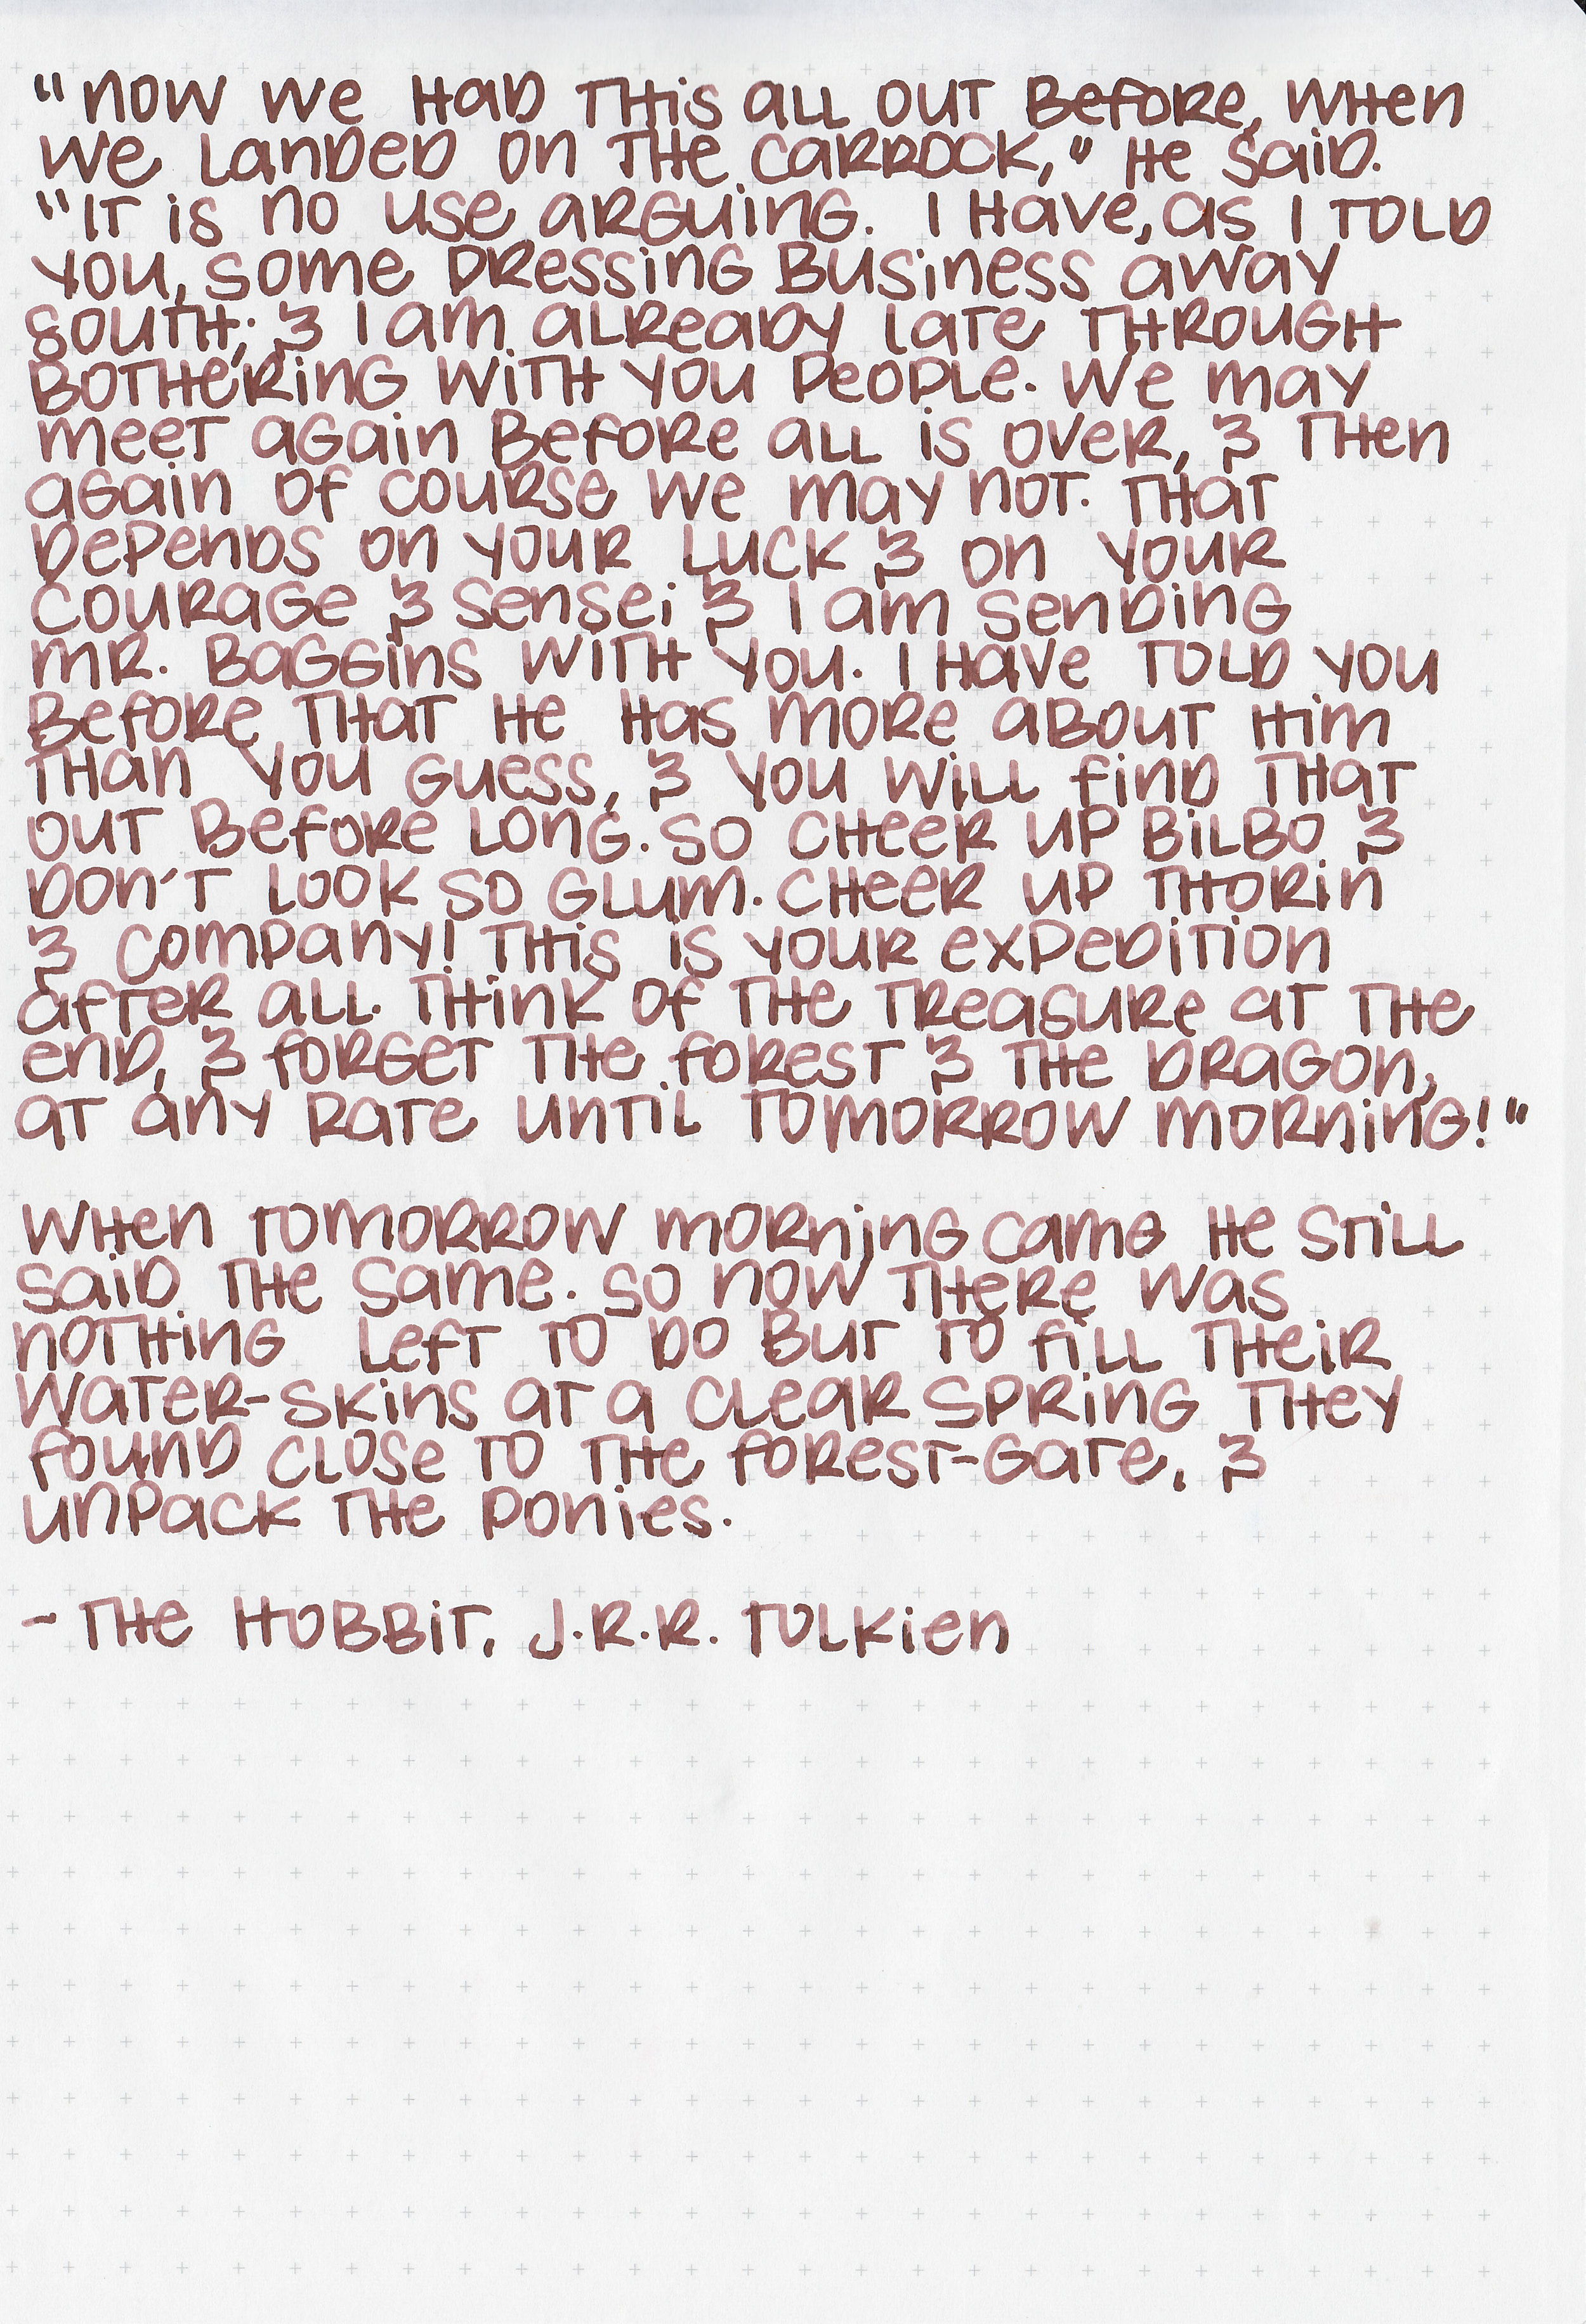 "Now we had this all out before, when
we landed on the Carrock," he said.
"It is no use arguing. I have, as I told
you, some dressing business away
south; & I am already late through
bothering with you people. We may
meet again before all is over, & then
again of course we may not. That
depends on your luck & on your
courage & sense; & I am sending
Mr. Baggins with you. I have told you
before that he has more about him
than you guess, & you will find that
out before long. So cheer up Bilbo &
don't look so glum. Cheer up Thorin
& Company! This is your expedition
after all. Think of the treasure at the
end, & forget the forest & the dragon,
at any rate until tomorrow morning!"
When tomorrow morning came he still
said the same. So now there was
nothing left to do but to fill their
water-skins at a clear spring they
found close to the forest-gate, &
unpack the ponies.
- The Hobbit, J.R.R. Tolkien